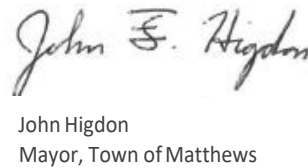 John F. Higdon
John Higdon
Mayor, Town of Matthews